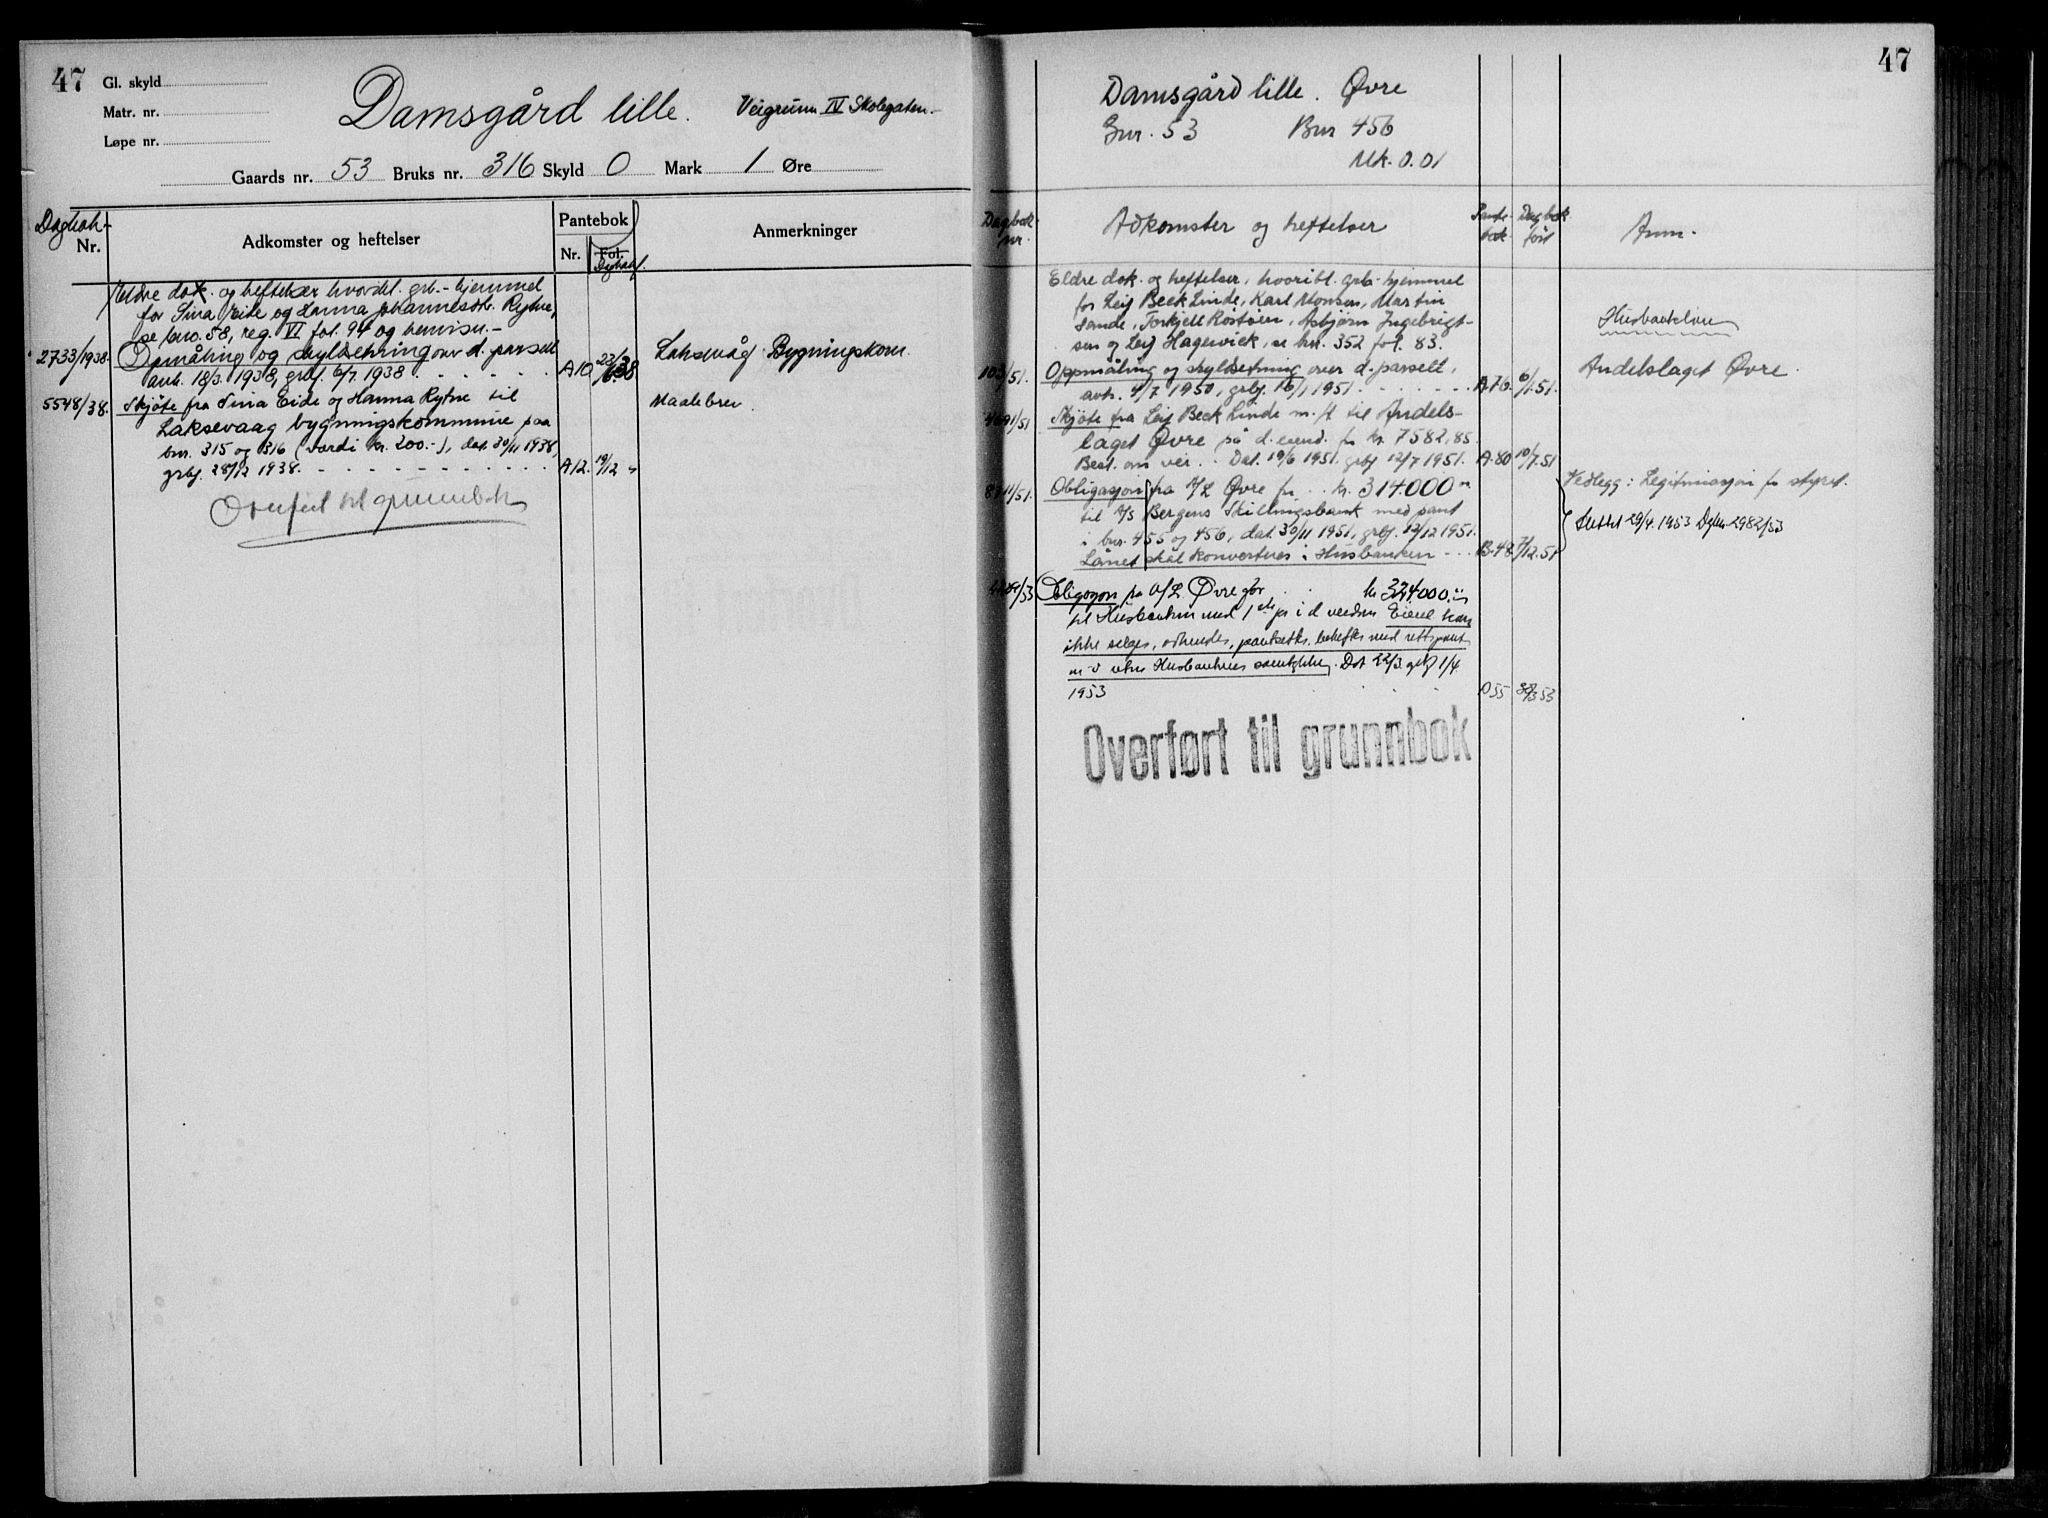 47
Gl. skyld
Matr. nr.
Løpe nr.
Damsgård lille.
Veigrunn IV Skolegaten.-
Gaards nr. 53 Bruks nr. 316 Skyld 0 Mark 1 Øre
Dagbok-
Nr.
Adkomster og heftelser
Pantebok
Nr.
Fol.
Dagbokf.
Anmerkninger
Eldre dok. og heftelser hvordbl. grb.-hjemmel
for Sina Eide og Hanna Johannesdtr. Rytne,
se bno. 58, reg. VI fol. 94 og henvisn.-
2733/1938 Opmåling og skyldsetning over d. parsell
avh. 18/3. 1938, grbf. 6/7. 1938 A10 23/6.38
Laksevåg Bygningskom.
5548/38. Skjöte fra Sina Eide og Hanna Rytne til
Maalebrev
Laksevaag bygningskommune paa
bnr. 315 og 316 (verdi kr. 200.-), dat. 30/11 1938,
grbf. 28/12 1938. A12. 19/12 "
Overført til grunnbok
47
Damsgård lille. Øvre
Gnr. 53 Bnr 456
Mk. 0.01
Dagbok-
nr.
Adkomster og heftelser
Pante-
bok
Dagbok
ført
Anm.
Eldre dok. og heftelser, hvoribl. grb-hjemmel
for Leif Beck Linde, Karl Monsen, Martin
Sande, Torkjell Rostøen, Asbjørn Ingebrigt-
sen og Leif Hagevick, se bnr. 352 fol. 83.
Husbanklån
103/51. Oppmåling og skyldsetning over d. parsell,
avh. 4/7 1950, grbf. 16/1 1951. A.76. 6/1.51.
Andelslaget Øvre.
4691/51 Skjøte fra Leif Beck Linde m. fl. til Andels-
laget Øvre på d. eiend. for kr. 7582,85.
Best. om vei. Dat. 19/6 1951. grbf 12/7 1951. A.80 10/7.51
Obligasjon fra A/L Øvre for kr. 314000
til A/S Bergens Skillingsbank med pant
i bnr. 455 og 456, dat. 30/11 1951, grbf. 12/12 1951.
Lånet skal konverteres i Husbanken B.48 7/12.51
Vedlegg: Legitimasjon for styret.
Slettet 29/4. 1953 Dgbnr 2982/53
Obligasjon fra A/L Øvre for kr 324000.
til Husbanken med 1ste pr i d eiendom Eiend kan
ikke selges, avhendes, pantsettes, beheftes med rettspant
m v uten Husbankens samtykke. Dat 22/3 grbf 1/4
1953 53
Overført til grunnbok